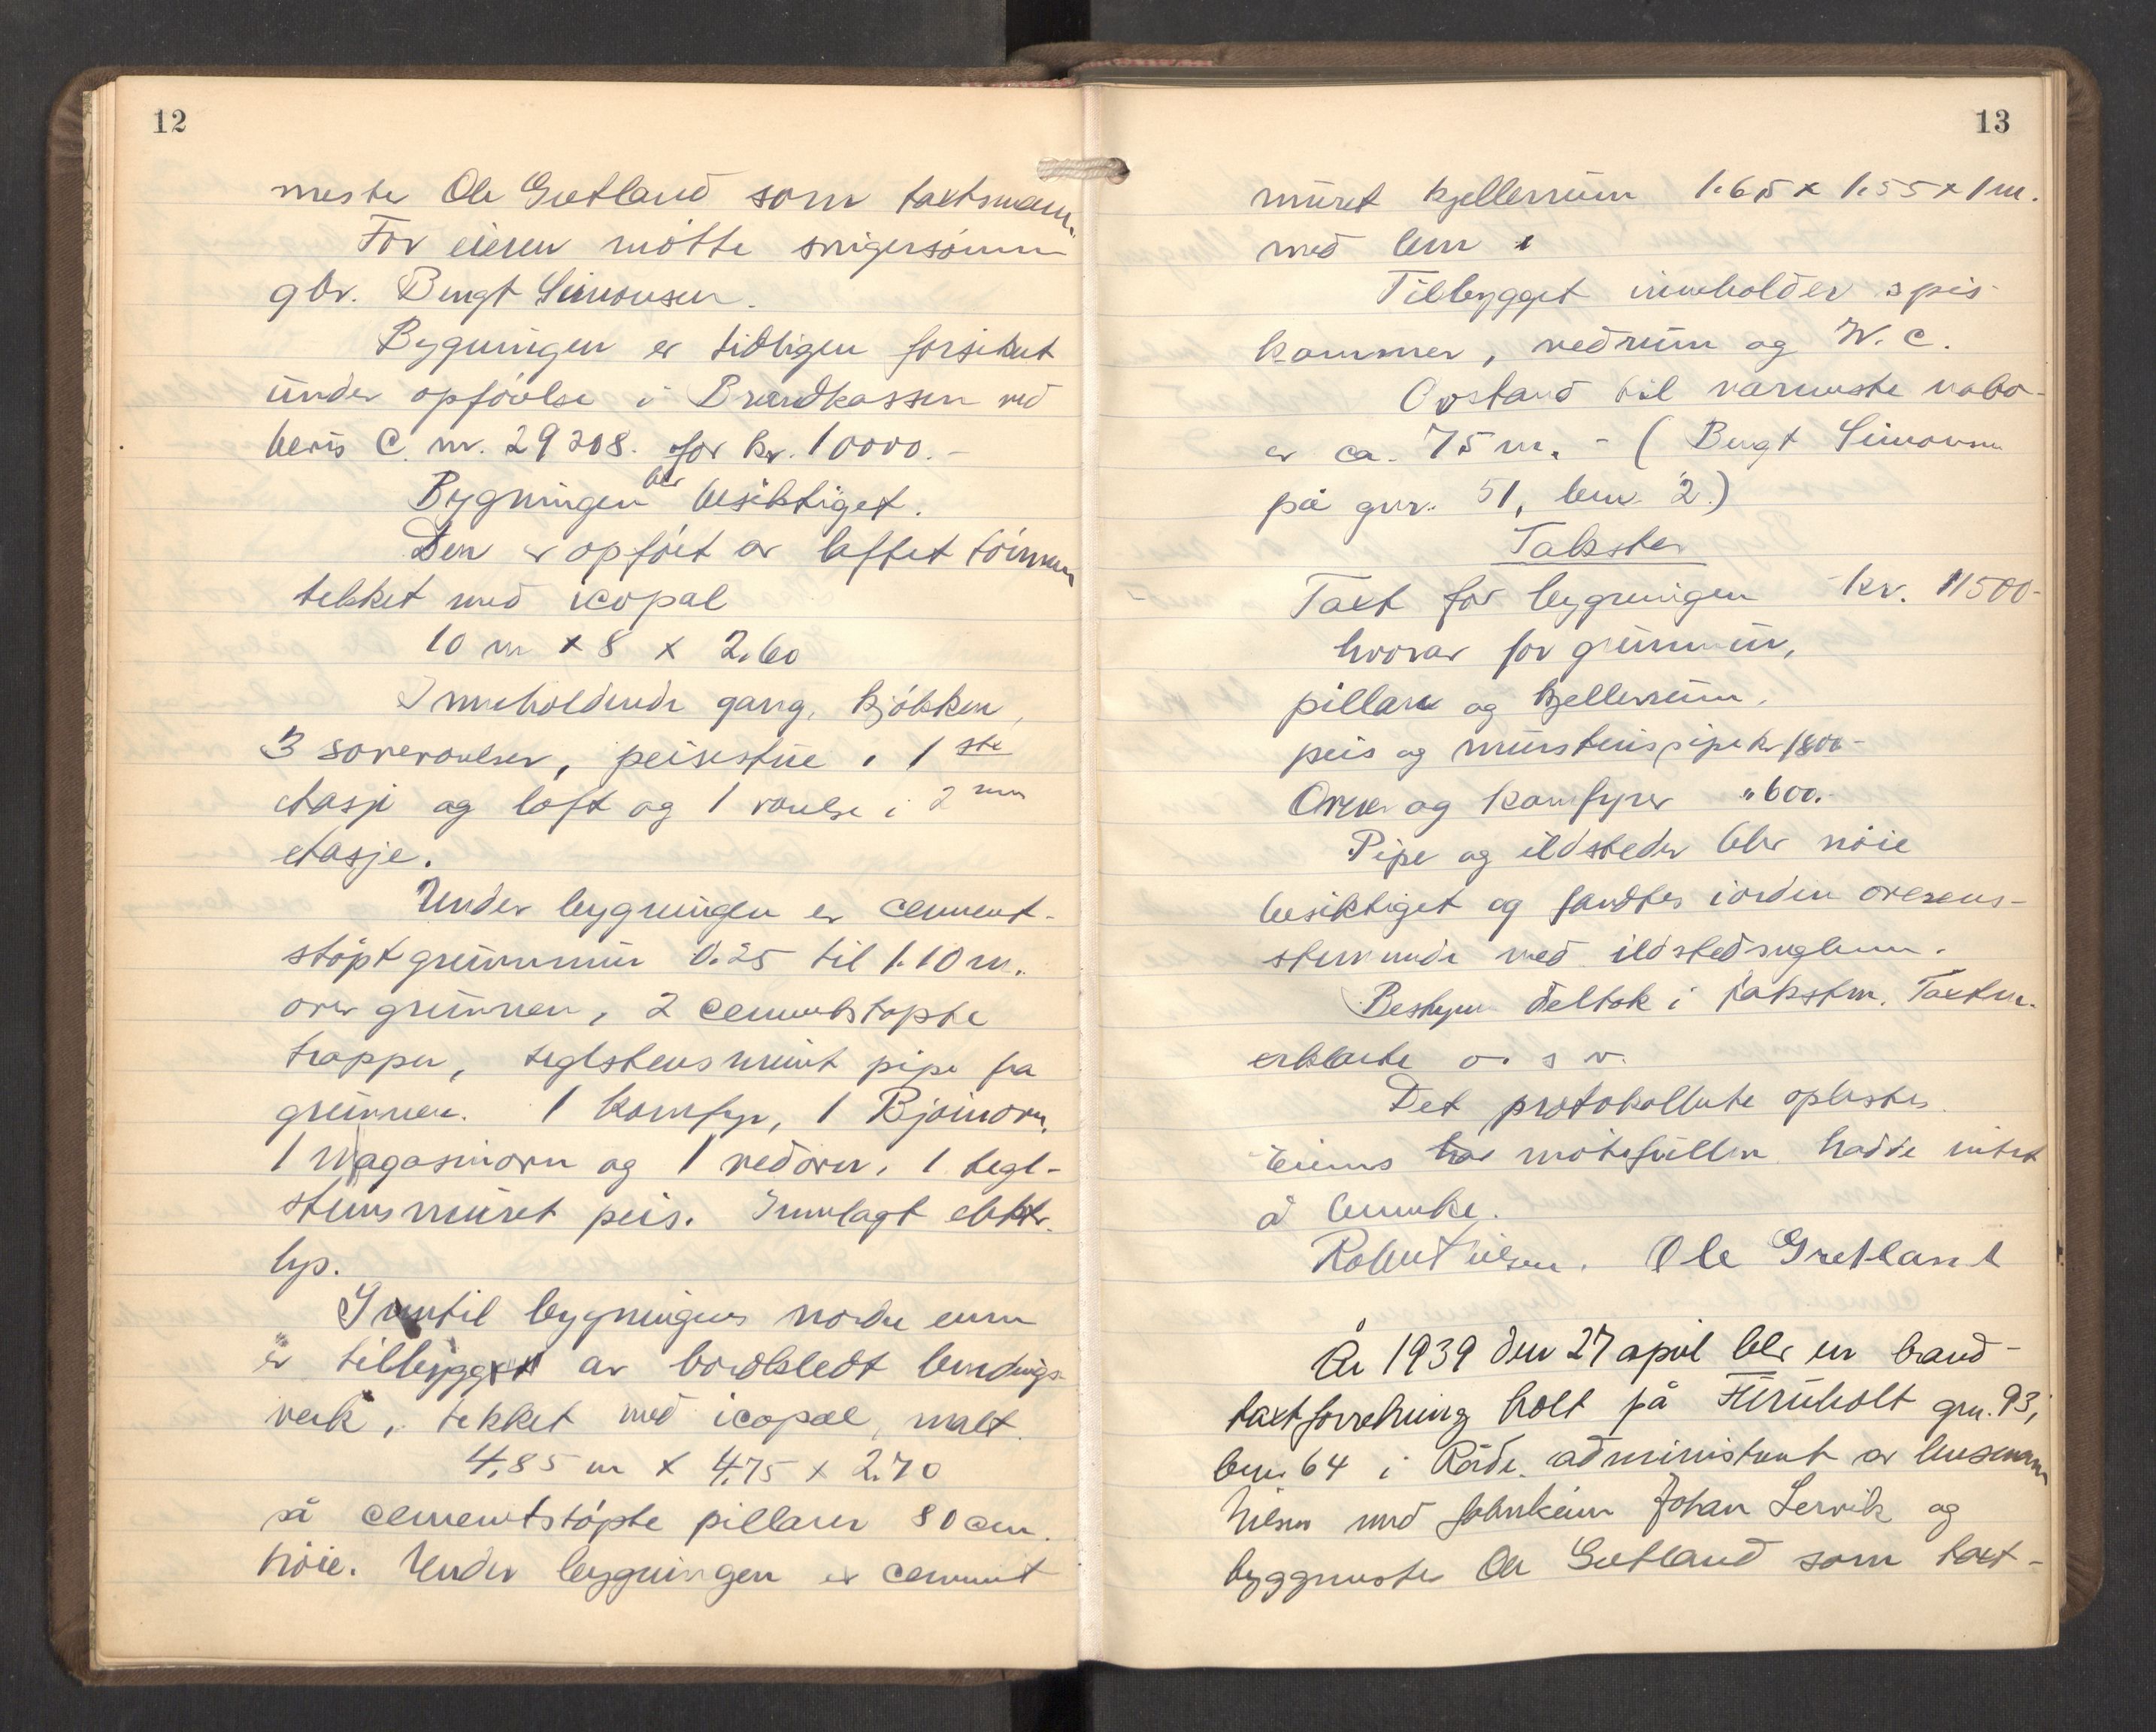 12
mester Ole Grefland som taxtsmenn.
For eieren møtte svigersønnen
gbr. Bengt Simonsen.
Bygningen er tidligen forsikret
under opførelse i Brandkassen ved
bevis C. nr. 29208. for kr. 10000.-
Bygningen blev besiktiget.
Den er opført av laftet tømmer
tekket med icopal
10 m x 8 x 2.60
Inneholdende gang, kjøkken,
3 soveværelser, peisestue i 1ste
etasje og loft og 1 værelse i 2nen
etasje.
Under bygningen er cement-
støpt grunnmur 0.25 til 1.10 m.
over grunnen, 2 cementstøpte
trapper, teglstensmurt pipe fra
grunnen. 1 komfyr, 1 Bjoinovn,
1 Magasinovn og 1 vedovn, 1 tegl-
stensmuret peis. Innlagt elektr.
lys.
Inntil bygningens nordre ende
er tilbygget av bordkledt bindings-
verk, tekket med icopal, malt.
4,85 m x 4,75 x 2.70
på cementstøpte pillarer 80 cm.
høie. Under bygningen er cement
13
muret kjellerrum 1.65 x 1.55 x 1 m.
med lem i
Tilbygget inneholder spis-
kammer, vedrum og W. C.
Avstand til nærmeste nabo
er ca. 75 m. - (Bengt Simonsen
på gnr. 51, bnr. 2.)
Takster
Taxt for bygningen kr. 11500-
hvorav for grunnmur,
pillarer og kjellerrum,
peis og murstenspipe kr 1800-
Ovner og komfyrer " 600.-
Pipe og ildsteder blev nøie
besiktiget og fandtes iorden overens-
stemmende med ildstedsreglene.
Bestyrer deltok i taksten. Taxtm.
erklærte o. s v.
Det protokollerte oplestes.
Eierens har møtefullm. hadde intet
å bemerke.
Robert Nilsen. Ole Grefland
År 1939 den 27 april blev en brand-
taxtforretning holt på Furuholt gnr. 93,
bnr. 64 i Råde, administrert av lensmann
Nilsen med Johan Lervik og
byggmester Ole Grefland som taxt-